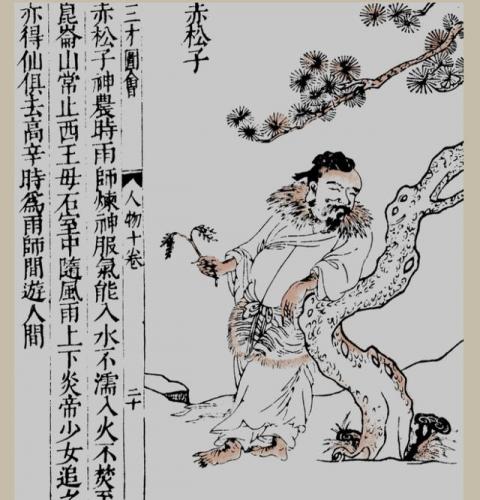 赤松子
三才圖會
人物十卷
二十
赤松子神農時雨師煉神服氣能入水不濡入火不焚至
崑崙山常止西王母石室中隨風雨上下炎帝少女追之
亦得仙俱去高辛時為雨師間遊人間